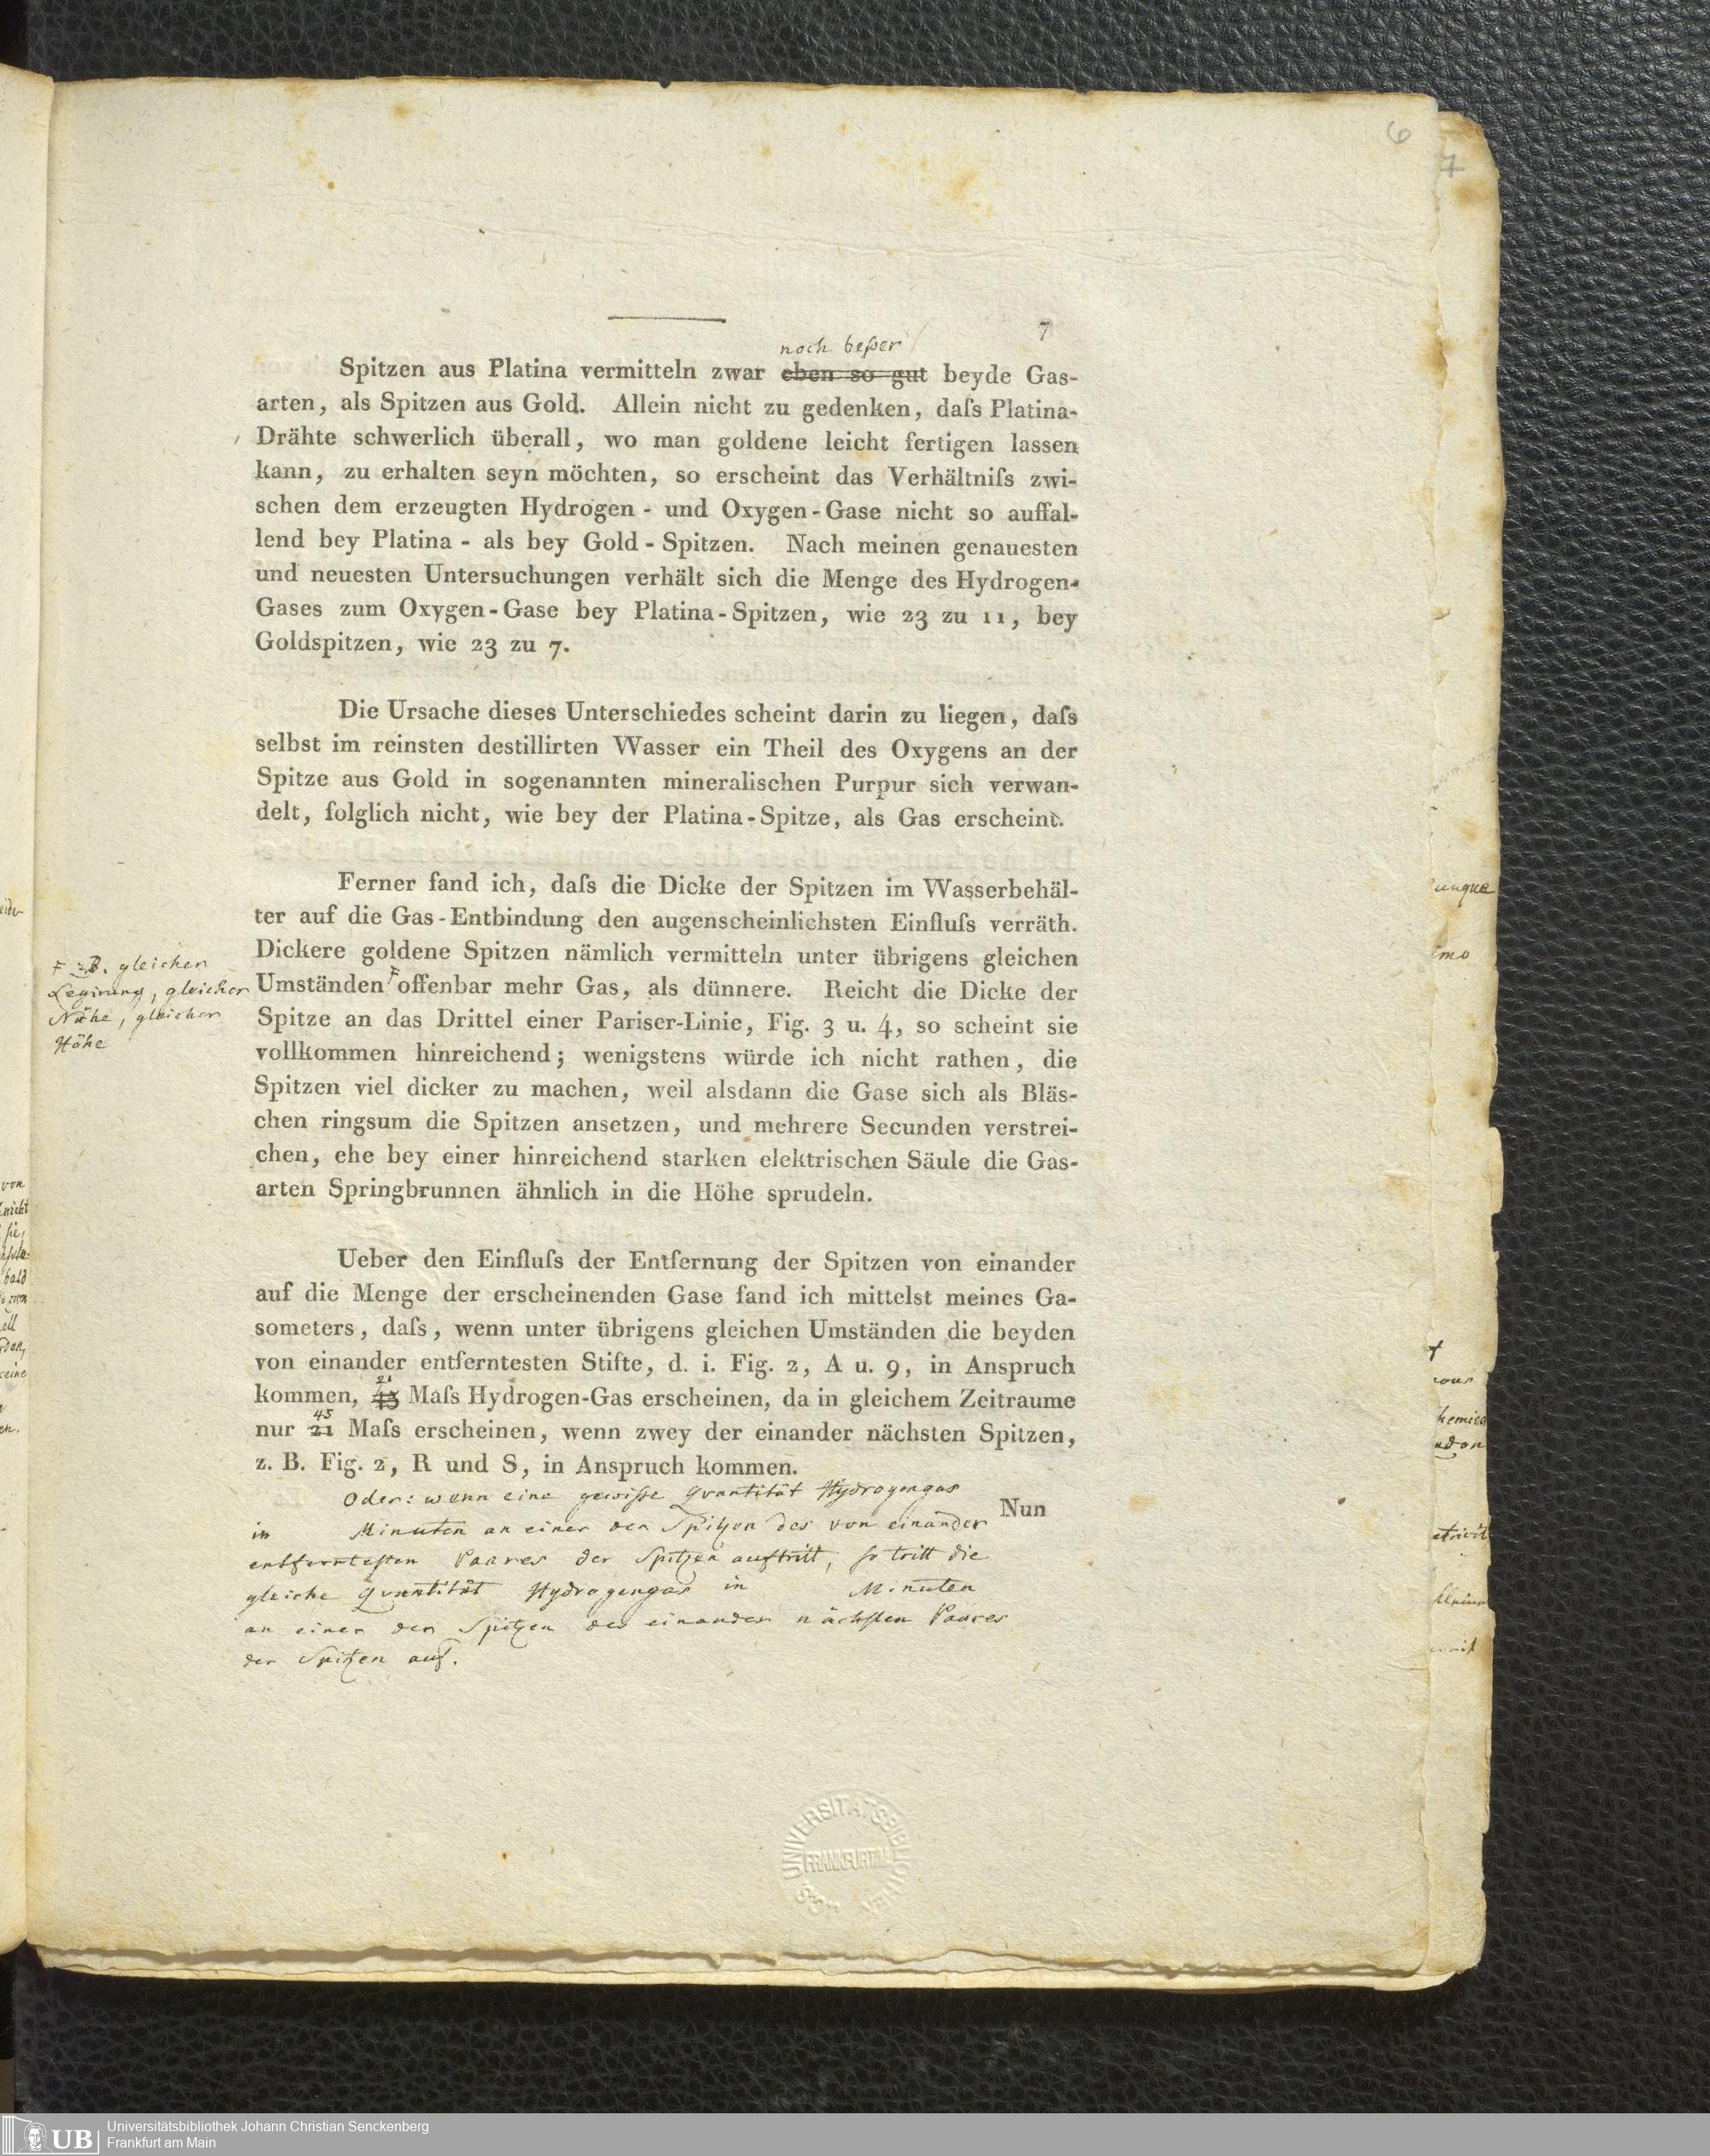 6
7
7
noch beſser
Spitzen aus Platina vermitteln zwar eben so gut beyde Gas-
arten, als Spitzen aus Gold. Allein nicht zu gedenken, daſs Platina-
Drähte schwerlich überall, wo man goldene leicht fertigen lassen
kann, zu erhalten seyn möchten, so erscheint das Verhältniſs zwi-
schen dem erzeugten Hydrogen - und Oxygen-Gase nicht so auffal-
lend bey Platina - als bey Gold - Spitzen. Nach meinen genauesten
und neuesten Untersuchungen verhält sich die Menge des Hydrogen-
Gases zum Oxygen-Gase bey Platina-Spitzen, wie 23 zu 11, bey
Goldspitzen, wie 23 zu 7.
Die Ursache dieses Unterschiedes scheint darin zu liegen, daſs
selbst im reinsten destillirten Wasser ein Theil des Oxygens an der
Spitze aus Gold in sogenannten mineralischen Purpur sich verwan-
delt, folglich nicht, wie bey der Platina-Spitze, als Gas erscheint.
Ferner fand ich, daſs die Dicke der Spitzen im Wasserbehäl-
ter auf die Gas-Entbindung den augenscheinlichsten Einfluſs verräth.
Dickere goldene Spitzen nämlich vermitteln unter übrigens gleichen
Umständen F offenbar mehr Gas, als dünnere. Reicht die Dicke der
Spitze an das Drittel einer Pariser-Linie, Fig. 3 u. 4, so scheint sie
vollkommen hinreichend; wenigstens würde ich nicht rathen, die
Spitzen viel dicker zu machen, weil alsdann die Gase sich als Bläs-
chen ringsum die Spitzen ansetzen, und mehrere Secunden verstrei-
chen, ehe bey einer hinreichend starken elektrischen Säule die Gas-
arten Springbrunnen ähnlich in die Höhe sprudeln.
F z.B. gleicher
Legirung, gleicher
Nähe, gleicher
Höhe
Ueber den Einfluſs der Entfernung der Spitzen von einander
auf die Menge der erscheinenden Gase fand ich mittelst meines Ga-
someters, daſs, wenn unter übrigens gleichen Umständen die beyden
von einander entferntesten Stifte, d. i. Fig. 2, A u. 9, in Anspruch
21
kommen, 45 Maſs Hydrogen-Gas erscheinen, da in gleichem Zeitraume
45
nur 21 Maſs erscheinen, wenn zwey der einander nächsten Spitzen,
z. B. Fig. 2, R und S, in Anspruch kommen.
Nun
Oder: wenn eine gewiſse Quantität Hydrogengas
in Minuten an einer der Spitzen des von einander
entferntesten Paares der Spitzen auftritt, so tritt die
gleiche Quantität Hydrogengas in Minuten
an einer der Spitzen des einander nächsten Paares
der Spitzen auf.
UNIVERSITÄTSBIBLIOTHEK
FRANKFURT/M.
UB
Universitätsbibliothek Johann Christian Senckenberg
Frankfurt am Main